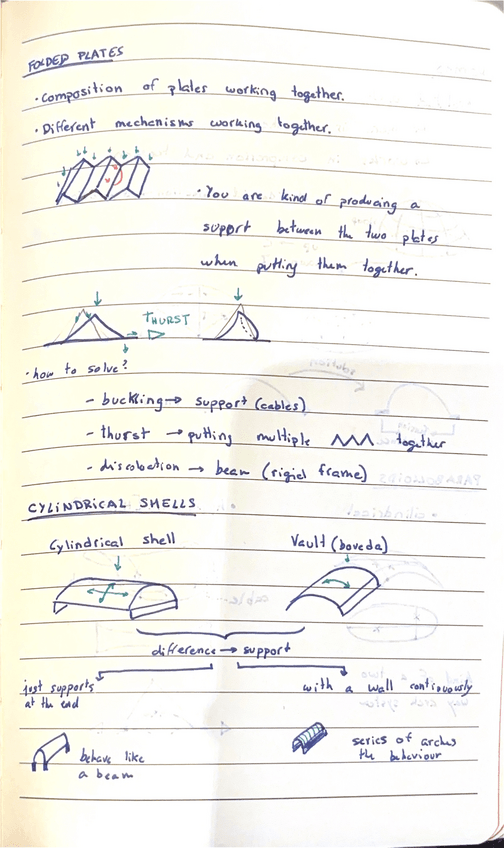 FOLDED PLATES
· Composition of plates working together.
· Different mechanisms working together.
· You are kind of producing a
support between the two plates
when putting them together.
THURST
· how to solve?
- buckling → support (cables)
- thurst → putting multiple together
- discolocation → beam (rigid frame)
CYLINDRICAL SHELLS
Cylindrical shell
Vault (boveda)
difference → support
just supports
at the end
with a wall continuously
behave like
a beam
series of arches
the behaviour